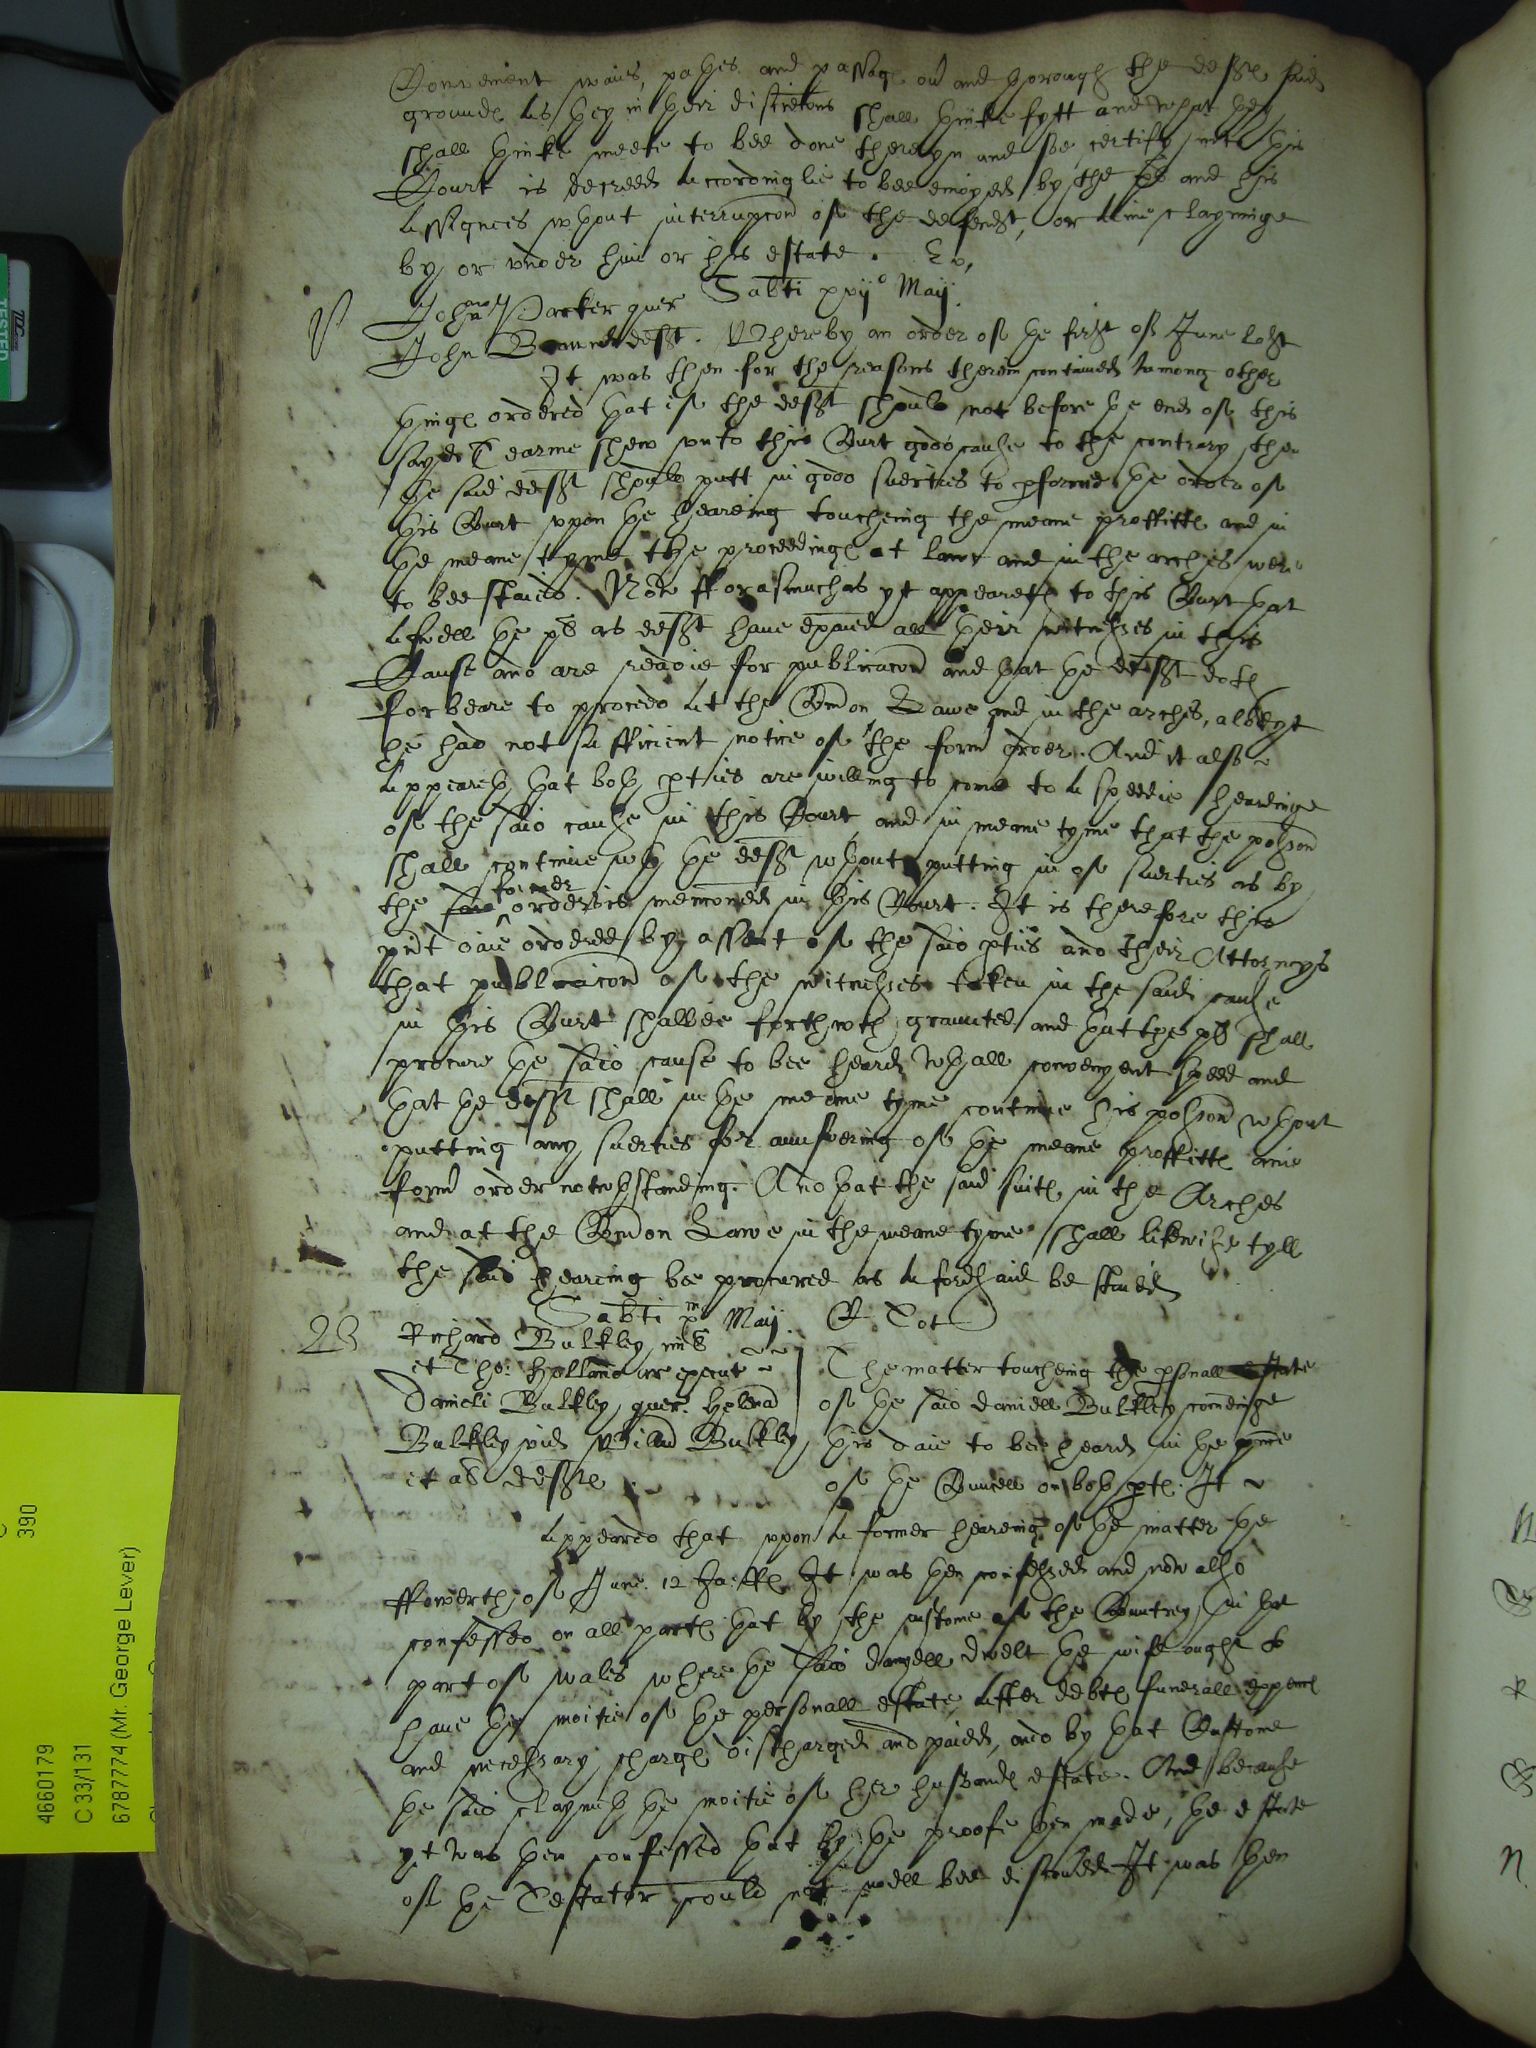 Convenient waies, pathes and passag ov and thorough the deft said
ground As they in their discretions shall thinke fytt and what they
shall thinke meete to bee done therein and soe certify into this
Court is decreed Accordinglie to bee enioyed by the pl and his
Assignees wthout interrupcon of the defendt, or Anie clayminge
by or vnder him or his estate.
Sabti xxijo Maij
John Parker quer
John deft. Whereby an order of the first of June last
It was then for the reasons therein conteined Among other
thing ordered that if the deft should not before the end of this
sayd Tearme shew vnto this Court good cause to the contrary then
the said deft should putt in good suerties to pforme the order of
this Court vpon the heareing toucheing the meane proffitt and in
the meane tyme the proceeding at lawe and in the arches were
to bee staied. Now fforasmuch as yt appeareth to this Court that
Aswell the pl as deft haue exaied all their witnesses in this
Cause and are readie for publicacon and that the deft doth
forbeare to proceed At the Comon Lawe and in the arches, albeyt
he had not sufficient notice of the form order. And it also
Appeareth that both pties are willing to come to A speedie heareinge
of the said cause in this Court and in meane tyme that the possion
shall continue wth the deft wthout putting in of suerties as by
the former order is menconed in this Court. It is therefore this
pnt daie ordered by assent of the said pties and their Attorneys
that publicacon of the witnesses taken in the said cause
in this Court shalbee forthwth graunted and that the pl shall
procure the said cause to bee heard wth all convenyent speed and
that the deft shall in the meane tyme continue his possion wthout
putting any suerties for aunswering of the meane proffitt anie
form order notwthstanding. And that the said suit in the Arches
and at the Comon Lawe in the meane tyme shall likewise tyll
the said heareing be procured as Aforesaid be staied
Sabti Maij
Richard Bulkley mil
et Tho: Holland ar execut
Danieli Bulkley quer. Helena
Bulkley vid Willm Bulkley
et al deft
The matter toucheing the psonall estate
of the said Daniell Bulkley comeinge
this daie to bee heard in the pnce
of the Councell on both pt. It
Appeared that vpon A former heareing of the matter the
ffowerth of June 12 It was then confessed and now also
confessed on all part that by the custome of the Countrey in that
part of wales where the said danyell dwelt the wife ought to
haue the moitie of the personall estate After debt funerall expenc
and necessary charg discharged and paied, and by that Custome
the said claymeth the moitie of her husband estate. And because
yt was then confessed that by the proofe then made, the estate
of the Testator could not well bee discouered It was then
TESTED
390
4660179
C 33/131
6787774 (Mr. George Lever)